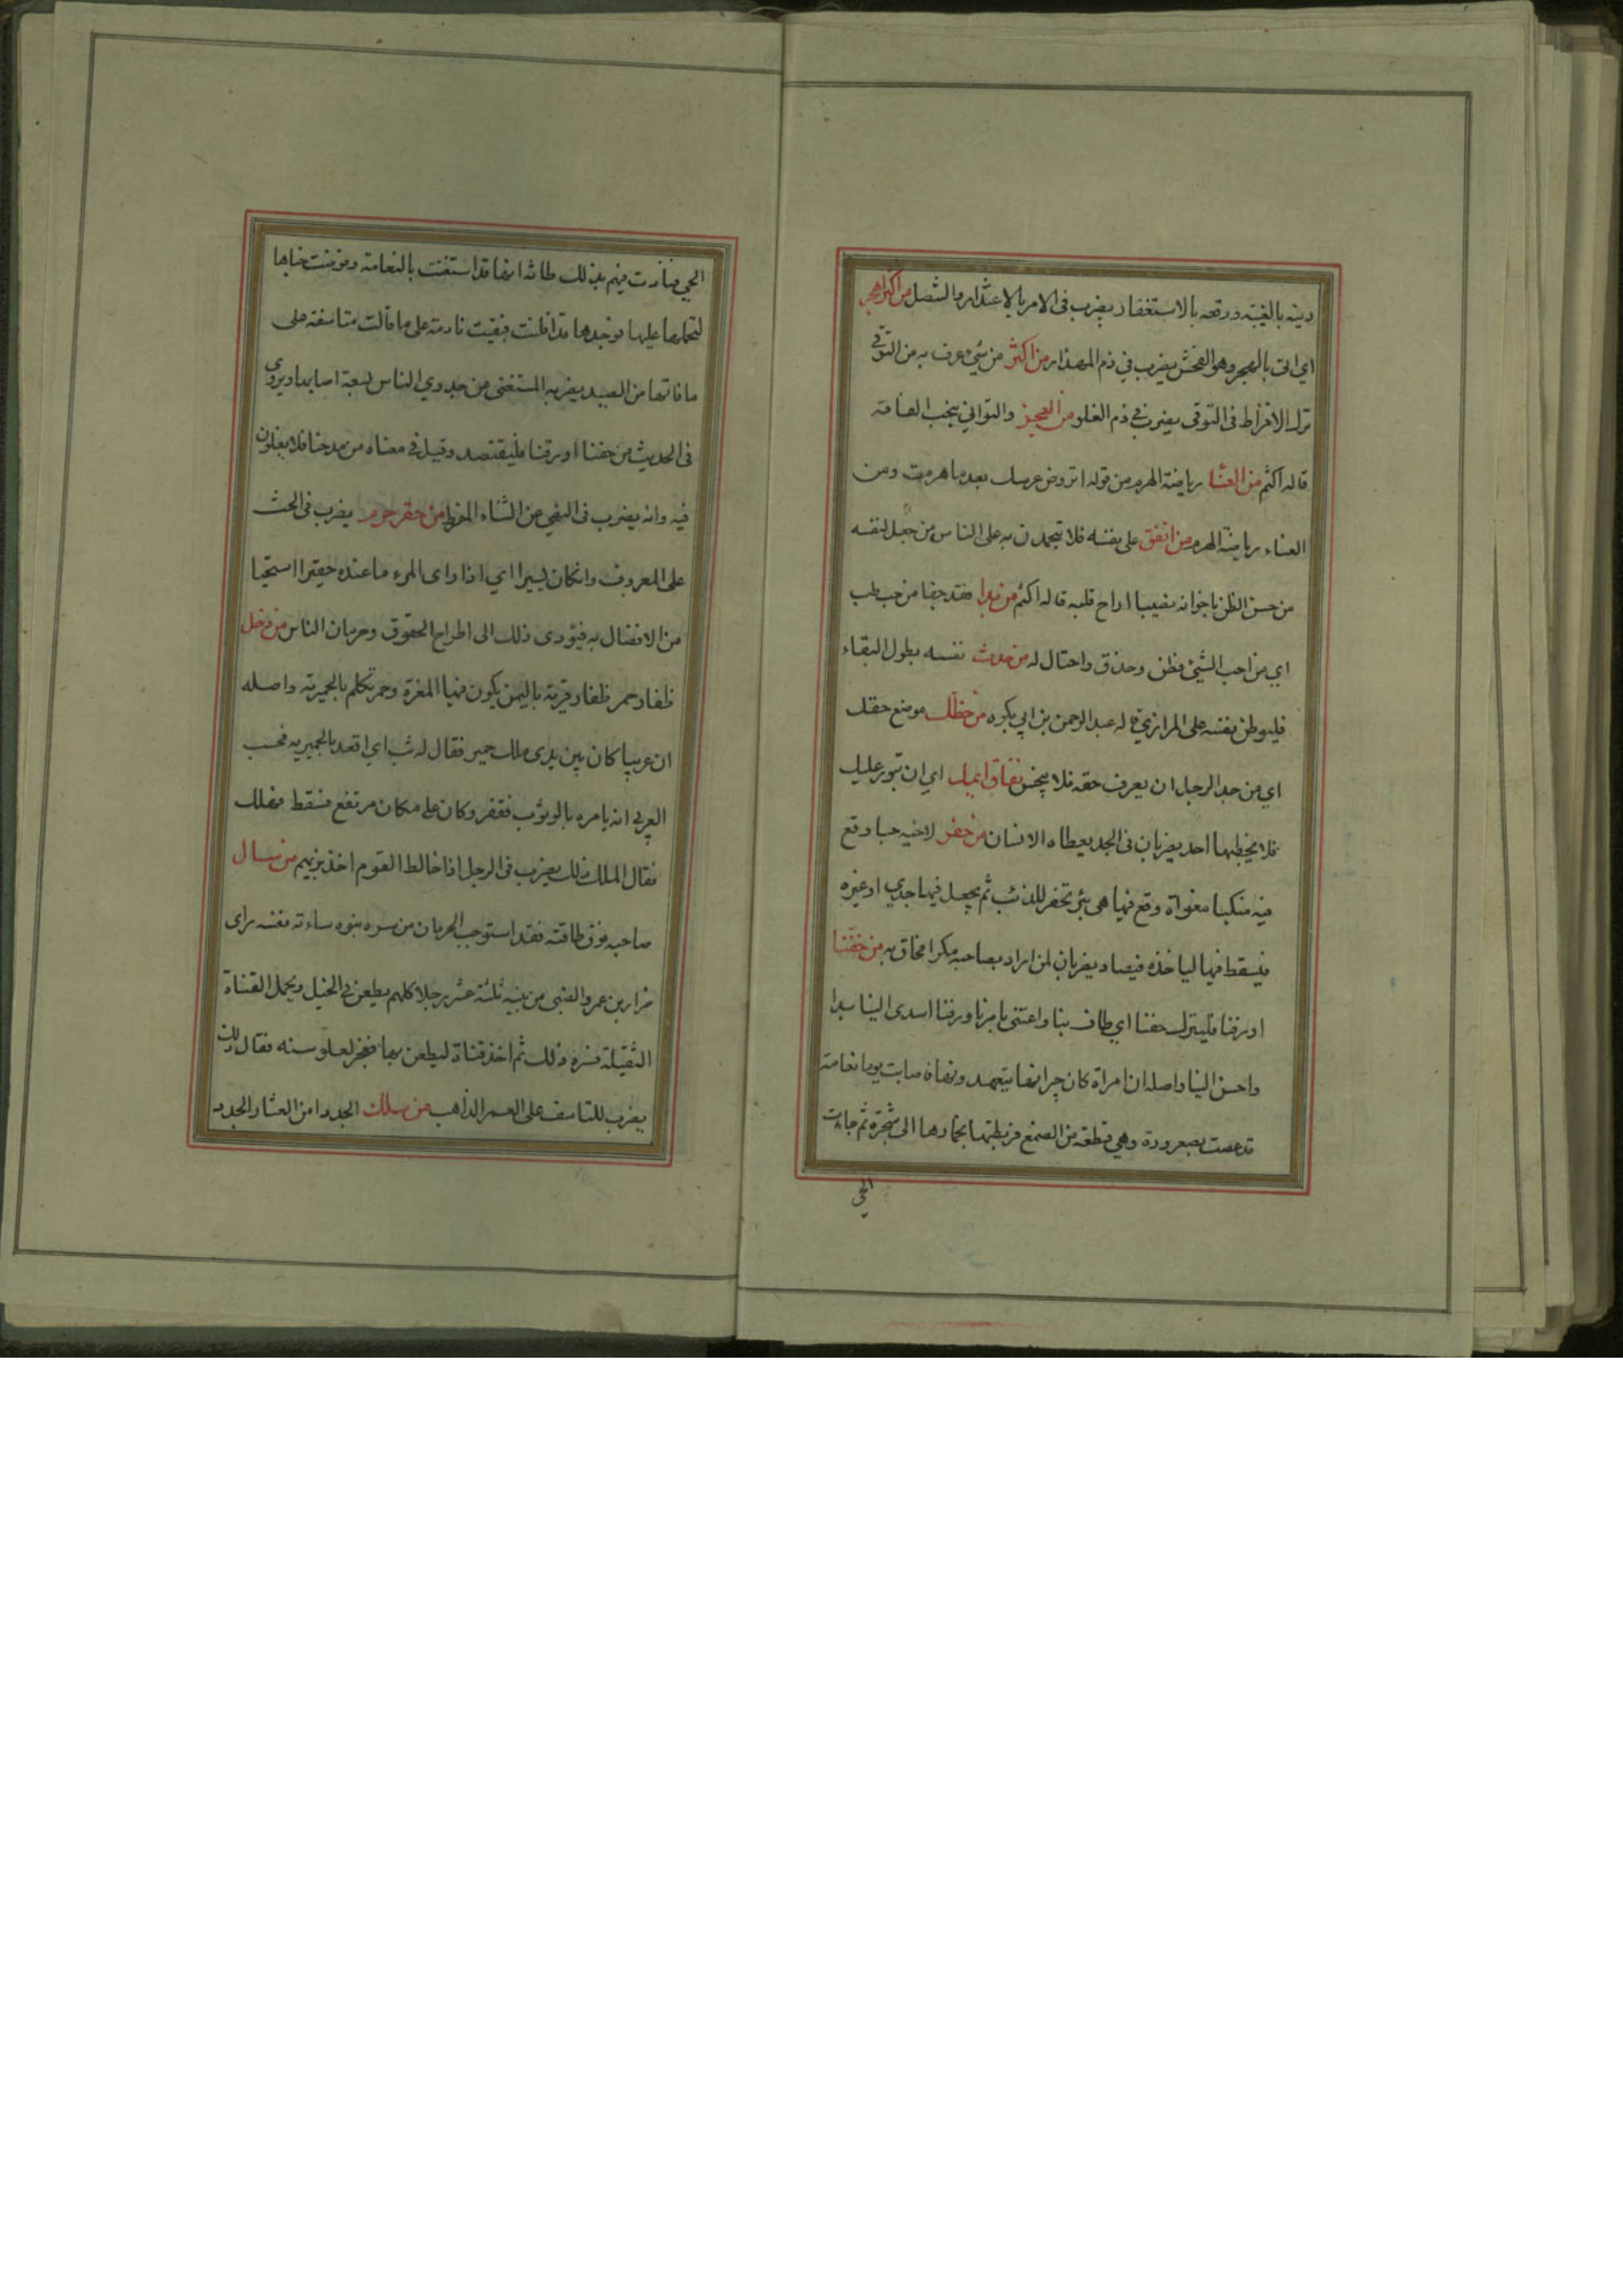 دينه بالغيبة ورقعه بالاستغفار يضرب فى الامر بالاعتذار والتنصل من اكثر اهجر
اي اتى بالهجر وهو الفحش يضرب في ذم المهذار من اكثر من شيء عرف به من التوقي
ترك الافراط فى التوقى يضرب في ذم الغلو من العجز والتواني ينجب الفاقة
قاله اكثم من العنا رياضة الهرم من قوله اتروض عرسك بعد ما هرمت ومن
العناء رياضة الهرم من انفق على نفسه فلا يتحمدن به على الناس من جعل لنفسه
من حسن الظن باخوانه نصيبا اراح قلبه قاله اكثم من بدا فقد جفا من حب طب
اي من احب الشيئ فطن وحذق واحتال له من حدث نفسه بطول البقاء
فليوطن نفسه على المرازي قاله عبد الرحمن بن ابي بكره من حظك موضع حقك
اي من جد الرجل ان يعرف حقه فلا يبخس نفاق ايمك اي ان تبور عليك
فلا يخطبها احد يضربان فى الجد يعطاه الانسان من حفر لاخيه جبا وقع
فيه منكبا مغواة وقع فيها هى بئر تحفر للذئب ثم يجعل فيها جدي او غيره
فيسقط فيها لياخذه فيصاد يضربان لمن اراد بصاحبه مكرا فحاق به من حفنا
او رفنا فليترك حفنا اي طاف بنا واعتنى بامرنا ورفنا اسدى الينا يدا
واحسن الينا واصله ان امراة كان جيرانها يتعهد ونها فاصابت يوما نعامة
قد غصت بصعرورة وهي قطعة من الصمغ فربطتها بخمارها الى شجرة ثم جاءت
الحي
الحي فنادت فيهم بذلك ظانة انها قد استغنت بالنعامة وقوضت خباها
لتحملها عليها فوجدها قد افلتت فبقيت نادمة على ما قالت متاسفة على
ما فاتها من الصيد يضربه المستغنى من جدوي الناس لسعة اصابها ويروي
فى الحديث من حفنا او رفنا فليقتصد وقيل في معناه من مدحنا فلا يغلون
فيه وانه يضرب فى النهي عن الثناء المفرط من حقر حرم يضرب فى الحث
على المعروف وان كان يسيرا اي اذا راى المرء ما عنده حقيرا استحيا
من الافضال به فيؤدى ذلك الى اطراح الحقوق وحرمان الناس من دخل
ظفار حمر ظفار قرية باليمن يكون فيها المغرة وحمر تكلم بالحميرية واصله
ان عربيا كان بين يدى ملك حمير فقال له ثب اي اقعد بالحميريه فحسب
العربي انه يامره بالوثوب فقفز وكان على مكان مرتفع فسقط فهلك
فقال الملك ذلك يضرب فى الرجل اذا خالط القوم اخذ بزيهم من سال
صاحبه فوق طاقته فقد استوجب الحرمان من سره بنوه ساءته نفسه راى
ضرار بن عمرو الضبى من بنيه ثلثة عشر رجلا كلهم يطعن في الخيل ويحمل القناة
الثقيلة فسره ذلك ثم اخذ قناة ليطعن بها فعجز لعلو سنه فقال ذلك
يضرب للتاسف على العمر الذاهب من سلك الجدد امن العثار الجدد